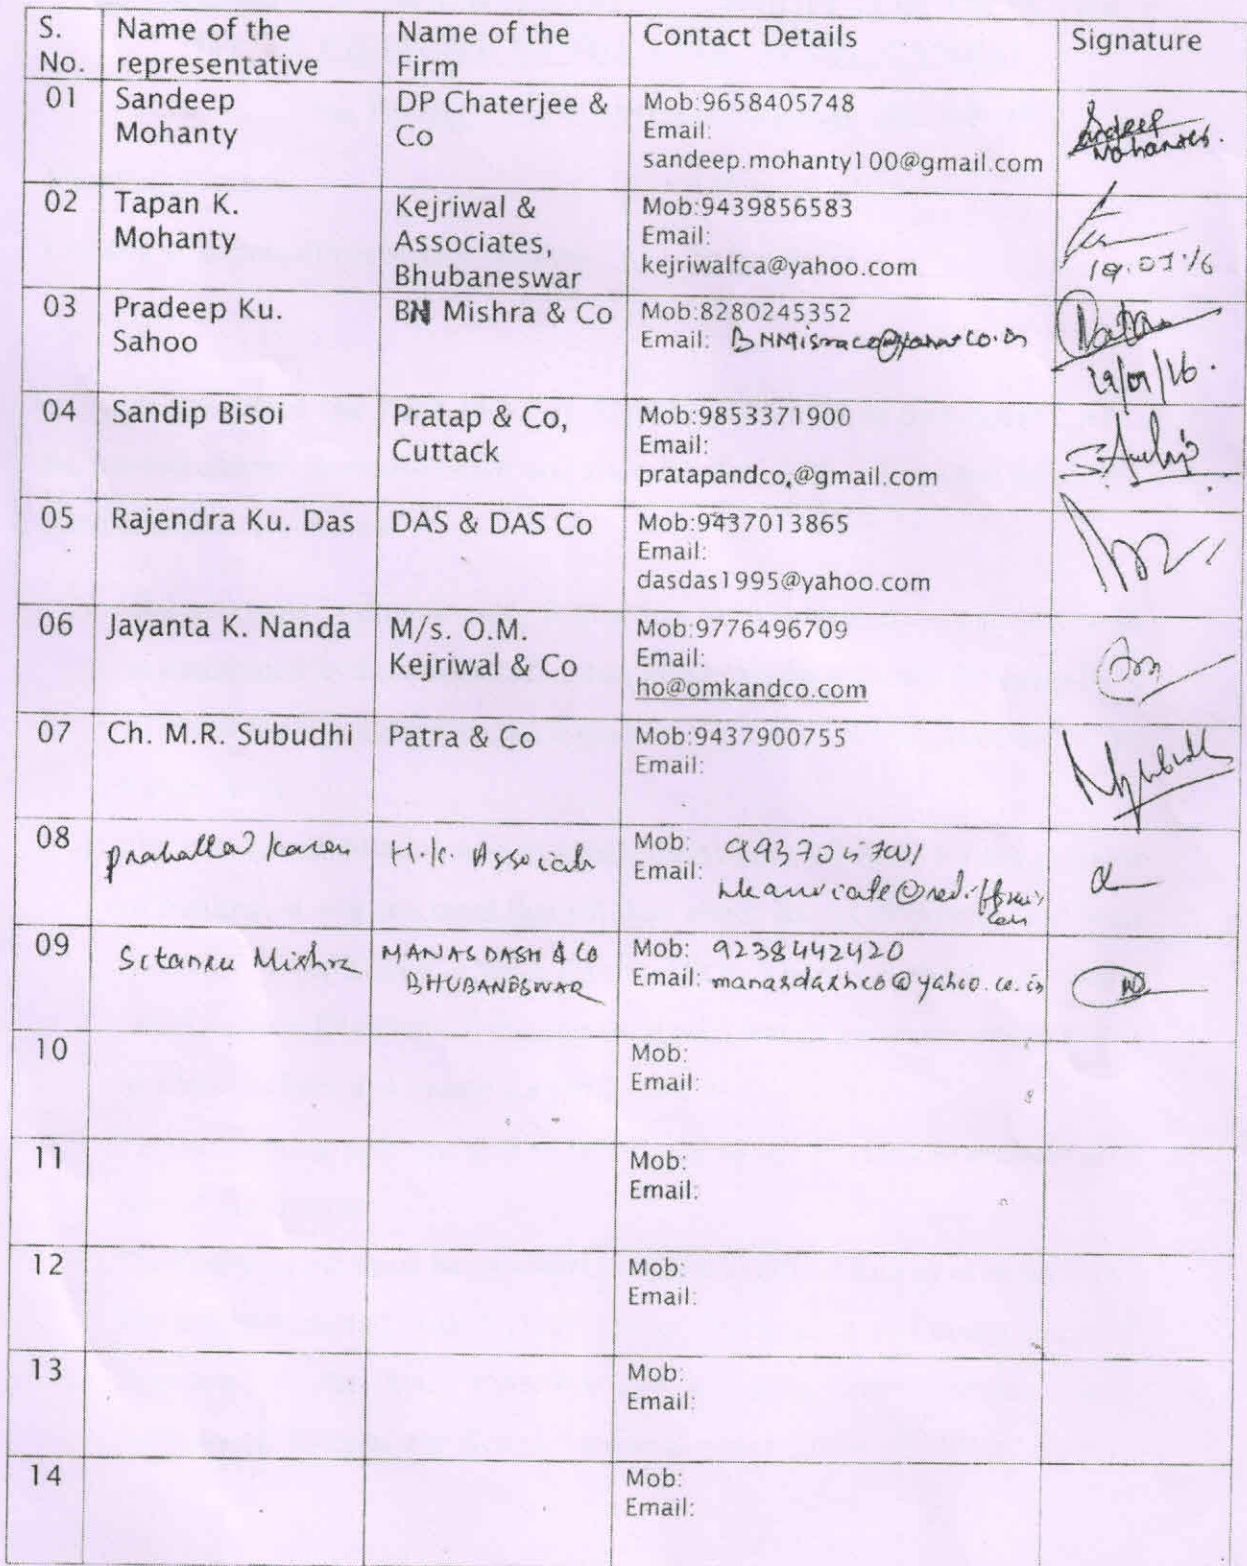 S. No.
Name of the representative
Name of the Firm
Contact Details
Signature
01
Sandeep
Mohanty
DP Chaterjee &
Co
Mob:9658405748
Email:
sandeep.mohanty100@gmail.com
Sandeep
Mohanty
02
Tapan K.
Mohanty
Kejriwal &
Associates,
Bhubaneswar
Mob:9439856583
Email:
kejriwalfca@yahoo.com
03
Pradeep Ku.
Sahoo
BN Mishra & Co
Mob:8280245352
Email:
04
Sandip Bisoi
Pratap & Co,
Cuttack
Mob:9853371900
Email:
pratapandco,@gmail.com
05
Rajendra Ku. Das
DAS & DAS Co
Mob:9437013865
Email:
dasdas1995@yahoo.com
06
Jayanta K. Nanda
M/s. O.M.
Kejriwal & Co
Mob:9776496709
Email:
ho@omkandco.com
07
Ch. M.R. Subudhi
Patra & Co
Mob:9437900755
Email:
08
H.K.
Mob:
Email:
09
Mishra
MANAS DASH & CO
BHUBANESWAR
Mob: 9238442420
Email: manasdashco@yahoo.co.in
10
Mob:
Email:
11
Mob:
Email:
12
Mob:
Email:
13
Mob:
Email:
14
Mob:
Email: